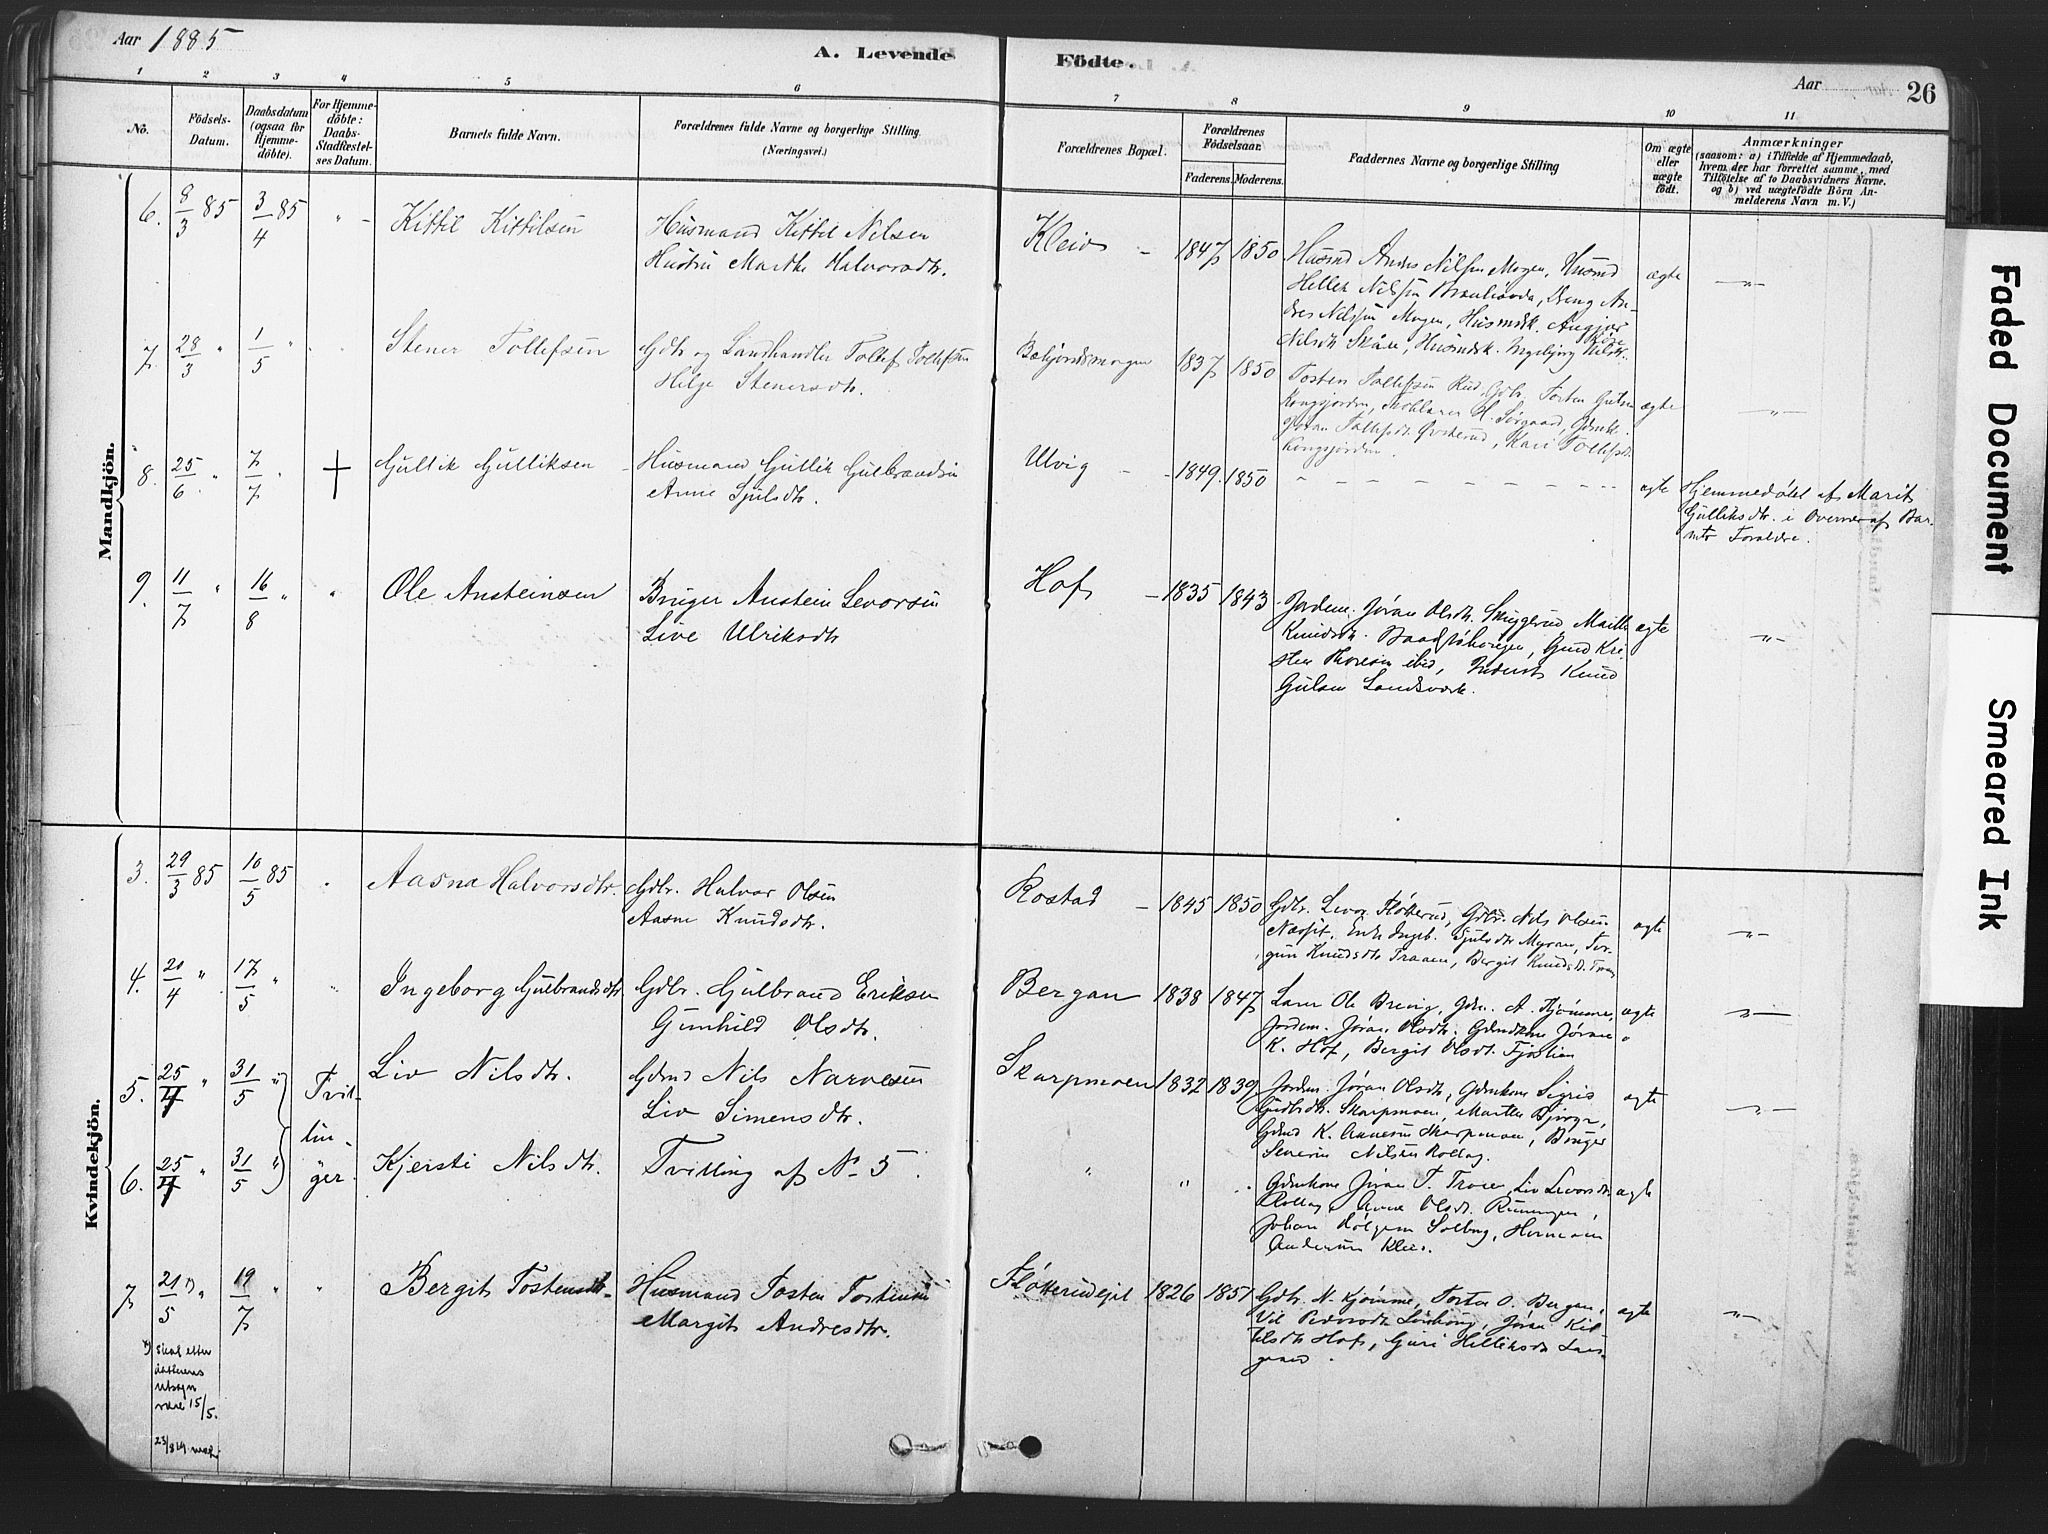 Aar 1885
A. Levende Födte.
Aar
26
1 2 3 4 5 6 7 8 9 10 11
No.
Födsels-
Datum.
Daabsdatum
(ogsaa for
Hjemme-
döbte).
For Hjemme-
döbte:
Daabs-
Stadfæstel-
ses Datum.
Barnets fulde Navn.
Forældrenes fulde Navne og borgerlige Stilling.
(Næringsvei.)
Forældrenes Bopæl.
Forældrenes
Födselsaar.
Faderens. Moderens.
Faddernes Navne og borgerlige Stilling
Om ægte
eller
uægte
födt.
Anmærkninger
(saasom: a) i Tilfælde af Hjemmedaab,
hvem der har forrettet samme, med
Tilföielse af to Daabsvidners Navne,
og b) ved uægtefödte Börn An-
melderens Navn m. V.)
Mandkjön.
6. 8/3 85 3/4 85 " Kittil Kittilsen Husmand Kittil Nilsen
Hustru Marthe Halvorsdtr.
Kleiv 1847 1850
Husmd Anders Nilsen Mogen, Husmd
Hellek Nilsen
Nilsen Mogen, Husmdsk.
Nilsdtr Skåre, Husmdsk. Ingebjørg Nilsdtr.
ægte "
7. 28/3 " 1/5 " " Stener Tollefsen Gdbr og Landhandler Tollef Tollefsen
Helge Stenersdtr.
1837 1850
Tosten Tollefsen Rud, Gdbr. Tosten
Kongsjorden, H. Sørgaard,
Jøran Tollefsdtr , Kari Tollefsdtr
Kongsjorden.
ægte "
8. 25/6 " 7/7 " † Gullik Gulliksen Husmand Gullik Gulbrandsen
Anne Sjulsdtr.
Ulvig 1849. 1850 ægte
Hjemmedøbt af Marit
Gulliksdtr. i Overvær af Bar-
nets Forældre.
9. 11/7 " 16/8 " " Ole Austeinsen Bruger Austein Levorsen
Live Ulriksdtr
Hof 1835 1843
Jordem. Jøran Olsdtr. Skuggerud, Marthe
Knudsdtr. , Gmd Kri-
sten Thoresen ibid, Inderst Knud
Gulsen Landsverk.
ægte "
Kvindekjön.
3. 29/3 85 10/5 85 " Aasna Halvorsdtr. Gdbr. Halvor Olsen
Aasne Knudsdtr.
Rostad 1845 1850
Gdbr. Levor Fløtterud, Gdbr. Nils Olsen
, Enke Ingeb. Sjulsdtr Myran, Tor-
gun Knudsdtr Traaen, Bergit Knudsdt. Traaen
ægte "
4. 20/4 " 17/5 " " Ingeborg Gulbrandsdtr Gdbr. Gulbrand Eriksen
Gunhild Olsdtr.
Bergan 1838 1847
Lars Ole Brevig, Gdm. A. Kjømme,
Jordem. Jøran Olsdtr. Gdmdkone Jøran
K. Hof, Bergit Olsdt. Fjøslien
ægte "
5. 25/4 " 31/5 " Tvil-
lin-
ger. Liv Nilsdtr. Gdmd Nils Narvesen
Liv Simensdtr.
Skarpmoen 1832 1839
Jordem. Jøran Olsdtr, Gdmkone Sigrid
Gudbr.dtr. Skarpmoen, Marthe Bjørge,
Gdmd K. Andersen Skarpmoen, Bruger
Severin Nilsen Rollag.
ægte "
6. 25/4 " 31/5 " Kjersti Nilsdtr. Tvilling af No 5.
" " "
Gdmkone Jøran T. Traaen, Liv Levorsdtr
Rollag, Anne Olsdt. Runningen,
Johan Helgesen Solberg, Hermann
Andersen Kleiv.
ægte
7. 21/5 *) " 19/7 " " Bergit Tostensdtr. Husmand Tosten Tostensen
Margit Andresdtr.
Fløtterudeiet 1826 1851
Gdbr. N. Kjømme, Tosten O. Bergan,
, Jøran Kit-
tilsdtr Hof, Guri Helliksdt
ægte "
*) skal efter
datterens
udsagn
være 15/5.
Faded Document
Smeared Ink